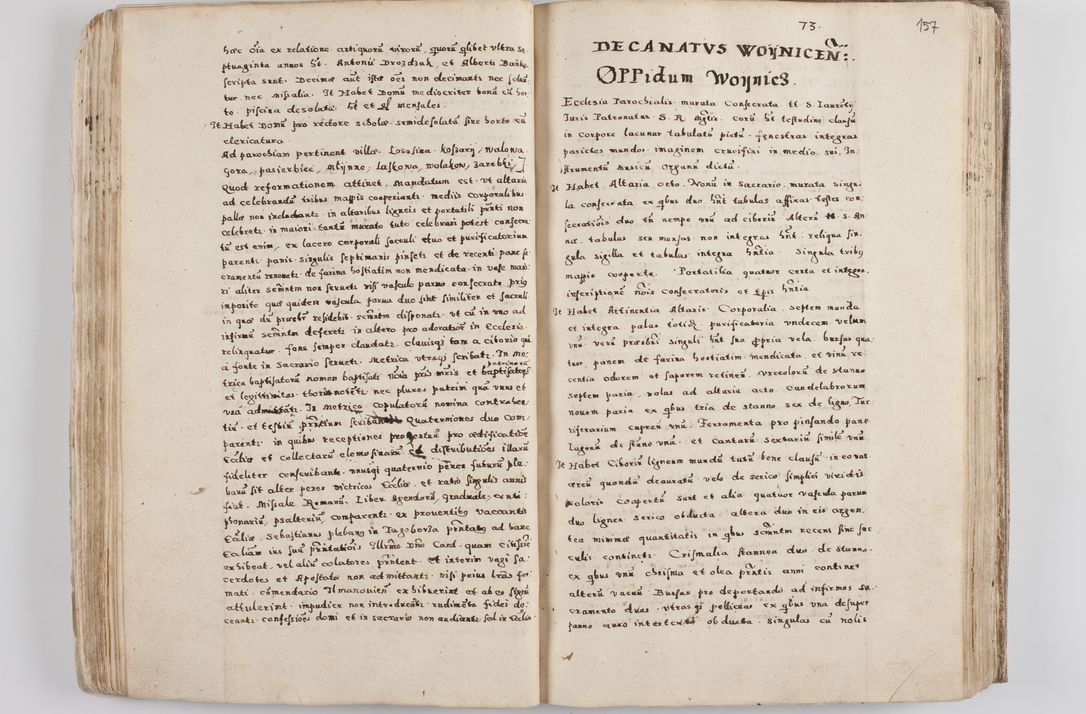 hæc oīa ex relatione antiquorū virorū, quorū qlibet vltra se
ptuaginta annos ht. Antonii Drozdzak, et Alberti
scripta sunt. Decimæ aut istæ oēs non decimanti nec solū
tur nec missalia. It Habet Domū mediocriter bonā cū hor
to piscina desolata. ht et mensales.
It Habet Domū pro rectore scholæ semidesolatā sine horto cū
clericatura.
Ad parochiam pertinent villæ. Lososina. Koszarÿ, walowa
gora, pasierbiec, Mlÿnne, Laskowa, wolakow, zarebki,
Quod reformationem attinet. Mandatum est. vt altaria
ad celebrandū tribus mappis cooperiantr. mediis corporalibus
palla non includantr. in altaribus ligneis et portatili prnti non
celebretr. in maiori tantū murato tuto celebrari potest consecra
tū est enim. ex lacero corporali saccculi et purificatorium
parentr. panis singulis septimanis pinsetr. et de recenti pane sa
cramentū renouetr. de farina hostiatim non mendicata. in vase maio
ri aliter scmntm non seruetr nisi vasculo paruo consecrato prius
imposito quæ quidem vascula parua duo sint similiter et sacculi
in quæ dū præsbr residebit scmntm disponatr. vt cū in vno ad
infirmū scmntm deferetr in altero pro adoratiōe in Ecclesia
relinquatur. fons semper claudatr. Clauisqȝ tam a ciborio quā
a fonte in Sacrario seruetr. Metrica vtraqȝ scribatr. In Me
trica baptisatorū nomen baptisati nōia pris mris et patrinorū baptisatoqȝ
et legittimitas thori notetr. nec plures patrini quā vnus et
vna admittatr. In Metrica copulatorū nomina contrahen
tiū et testiū prntium scribantr. Quaterniones duo com
parentr. in quibus receptiones prouentuū pro ædificatiōe
Ecclæ et collectarū elemosinarū et distributiōes illarū
fideliter conscribantr. vnusqȝ quaternio penes futurū ple
banū sit alter penes vitricos Ecclæ. et ratio singulis annis
fiat. Missale Romanū. Liber Agendorū, graduale, anti
phonariū, psalteriū, comparentr. ex prouentibg vaccantis
Ecclæ. Sebastianus plebang in Jagoborza prntatg ad hanc
Eccliam ius suū prntatiōis Illrmo Dno Card. quam citissie
exhibeat. vel aliū colatores prntent. et interim vagi sa
cerdotes et Apostatæ non admittantr. nisi prius lras for
mati comendario Ilmanouien exhibuerint et ab eo signū
attulerint. impudicæ non introducātr. rudimēta fidei do
ceantr. confessiōes domi et in sacrario non audiantr. sed in Ecclia
73. 157
DECANATVS WOŸNICEÑ:.
OPPidum Woÿnics.
Ecclesia Parochialis murata Consecrata tt S. Laurētÿ
Iuris Patronatus S. R. Mtis. corū ht testudine clausū
in corpore lacunar tabulatū pictū. fenestras integras
parietes mundos. imaginem crucifixi in medio sui. In
strumentū musicū organū dictū.
It Habet Altaria octo. Nonū in Sacrario. murata singu
la consecrata ex qbus duo hnt tabulas affixas testes con
secratiōis duo tn nempe vnū ad ciborium. Alterū tt S. An
næ. tabulas seu mensas non integras hnt. reliqua sin
gula sigilla et tabulas integra hntia. Singula tribg
mappis cooperta. Portatilia quatuor certa et integra.
inscriptionē nōis consecratoris et Epis hntia
It Habet Attinentia Altaris. Corporalia septem munda
et integra. palas totidē. purificatoria vndecem velum
vnū verū præsbri singuli hnt sua propria vela. bursas qua
tuor. panem de farina hostiatim mendicata. et vinū re
centia odorem et saporem retinen. vrceolorū de stanno
septem paria. nolas ad altaria octo. Candelabrorum
nouem paria ex qbus tria de stanno. sex de ligno, Tur
riferarium cupreū vnū. Ferramenta pro pinsando pane
lagenā de stāno vnā. et Cantarū sextariū similē vnū.
It Habet Ciboriū ligneum mundū tutū bene clausū in eo vas
æreū quondā deauratū velo de serico simplici viridis
coloris coopertū sunt et alia quatuor vascula parua
duo lignea serico obducta. altera duo in eis argen
tea minimæ quantitatis in qbus scmntm recens sine sac
culis continetr. Crismalia stannea duo de stanno.
ex qbus vnū chrisma et olea prntis anni continet
alterū vacuū. Bursas pro deportando ad infirmos Sa
cramento duas. vtrasqȝ pelliceas ex qbus vna desuper
panno auro intertexto obducta. Singulas cū nolis